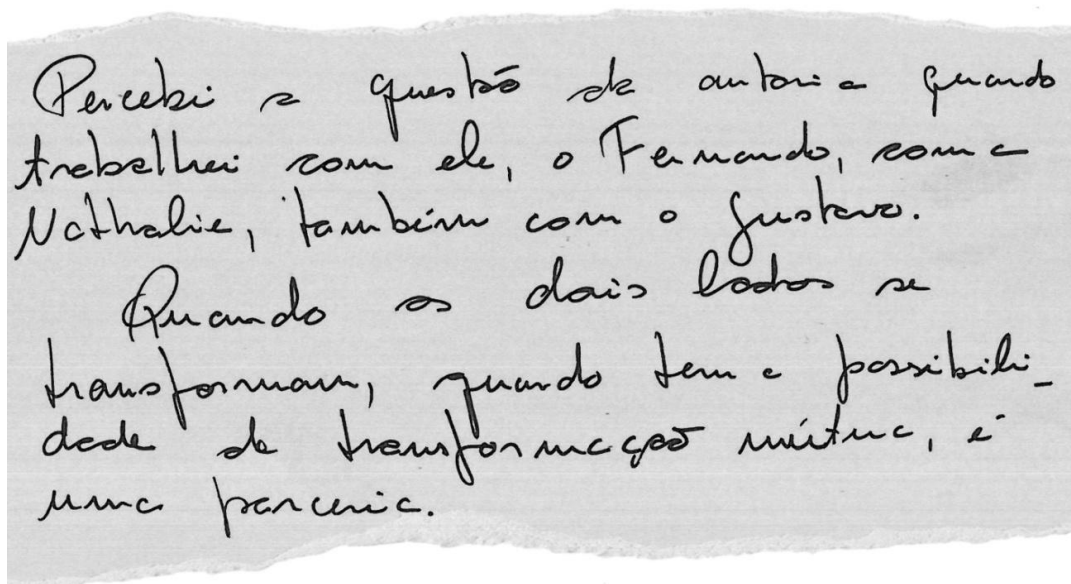 Percebi a questão da autoria quando
trabalhei com ele, o Fernando, com a
Nathalie, também com o Gustavo.
Quando os dois lados se
transformam, quando tem a possibili_
dade de transformação mútua, é
uma parceria.